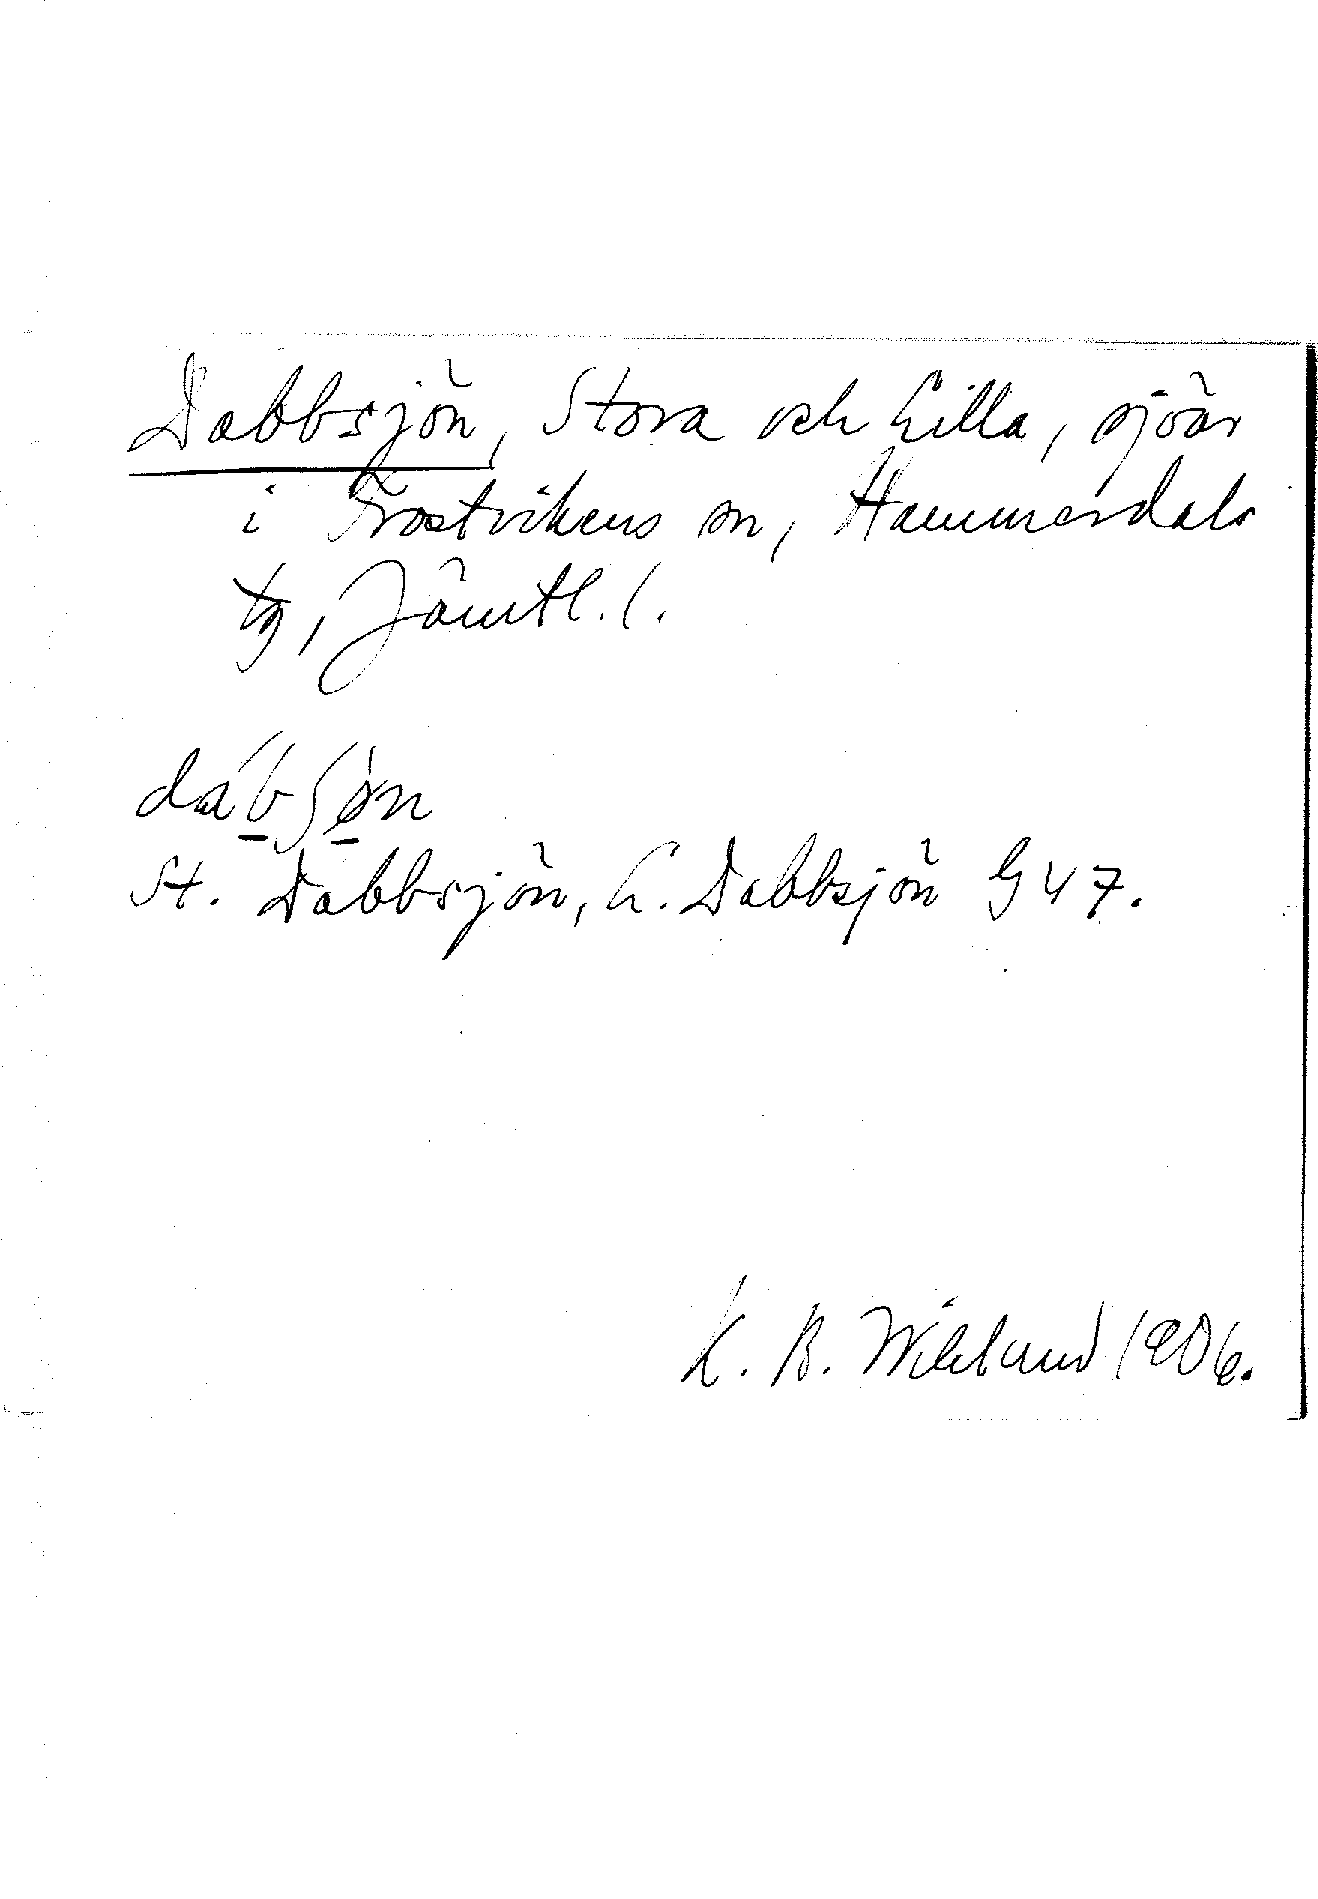 Dabbsjön, Stora och Lilla, sjöar
i Frostvikens sn, Hammerdals
tg, Jämtl. l.
dáb̲ʃø̲n
St. Dabbsjön, L. Dabbsjön G 47.
K. B. Wiklund 1906.